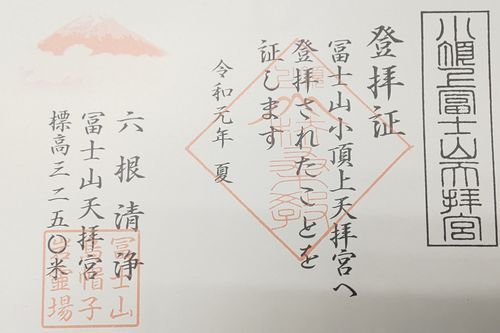 小頂上冨士山天拝宮
登拝証
冨士山小頂上天拝宮へ
登拝されたことを
証します
令和元年 夏
六根清浄
冨士山天拝宮
標高三二五〇米
冨士山
烏帽子
岩霊場